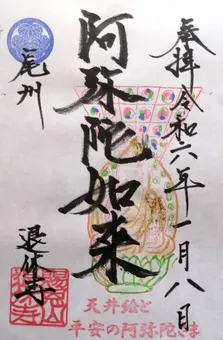 奉拝 令和六年一月八日
阿弥陀如来
尾州
退休寺
天井絵と
平安の阿弥陀さま